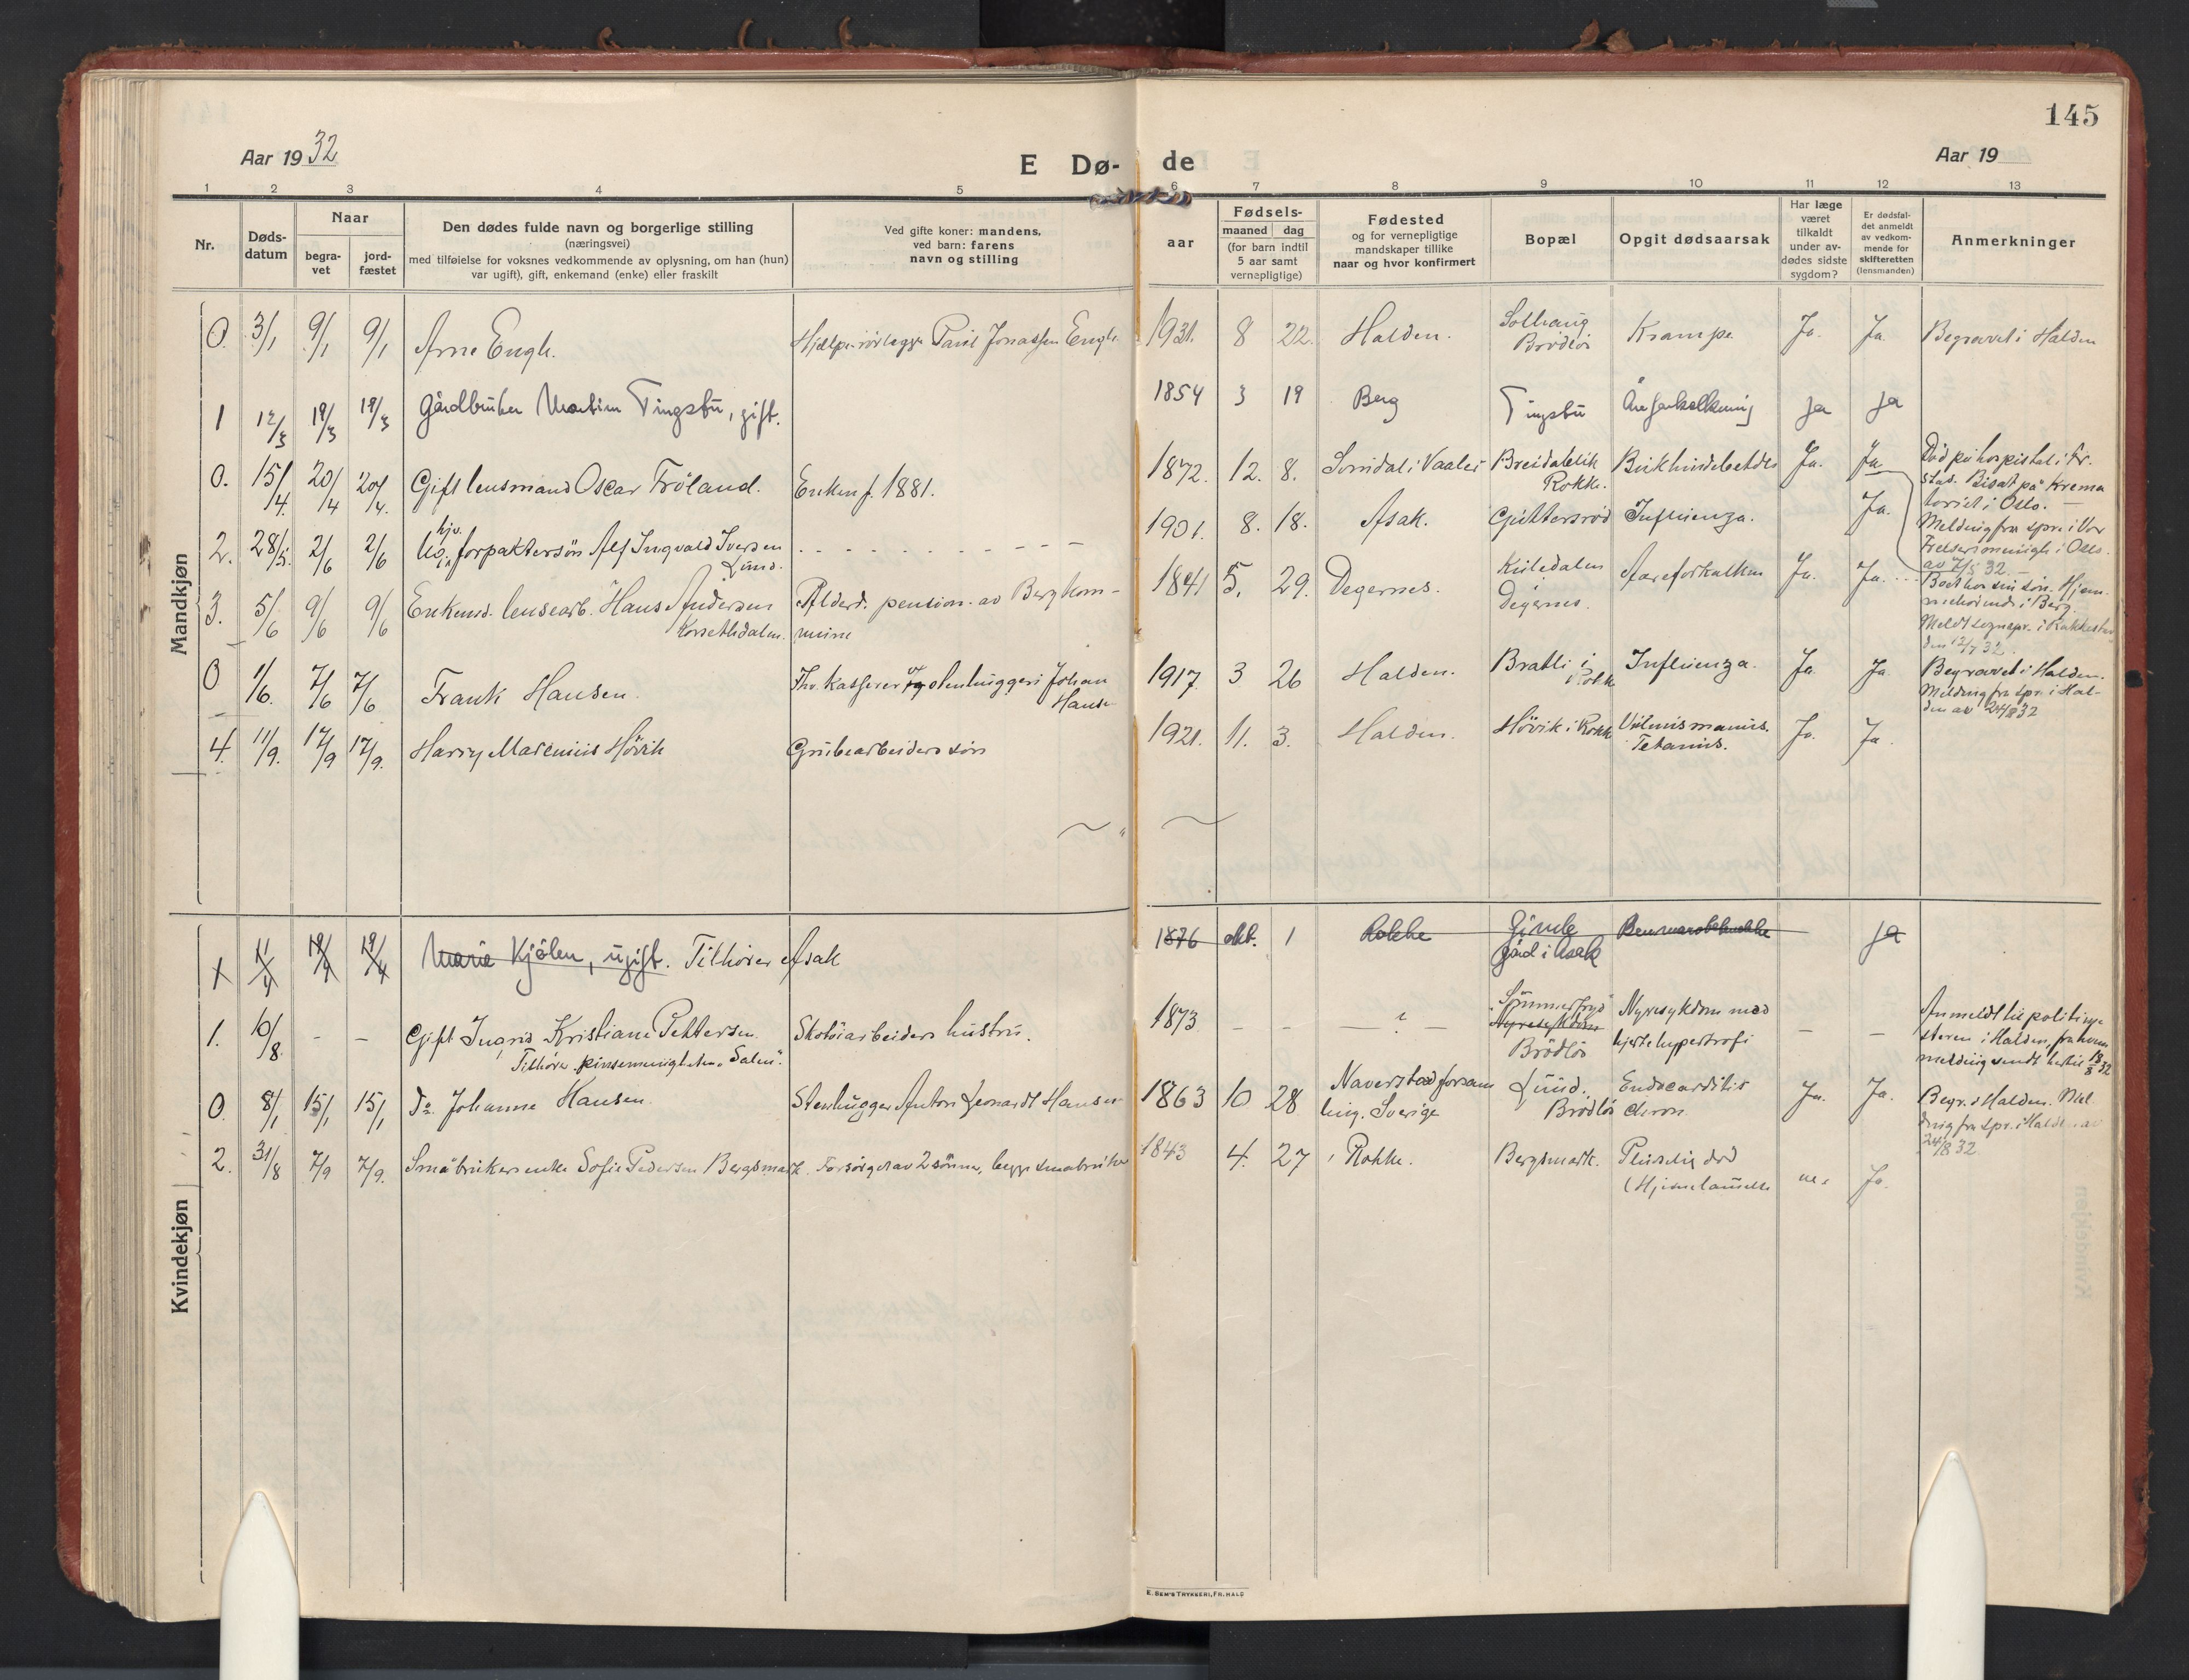 145
Aar 1932
E Dø- de
Aar 19
1 2 3 4 5 6 7 8 9 10 11 12 13
Nr.
Døds-
datum
Naar
begra-
vet
jord-
fæstet
Den dødes fulde navn og borgerlige stilling
(næringsvei)
med tilføielse for voksnes vedkommende av oplysning, om han (hun)
var ugift), gift, enkemand (enke) eller fraskilt
Ved gifte koner: mandens,
ved barn: farens
navn og stilling
aar
Fødsels-
maaned dag
(for barn indtil
5 aar samt
vernepligtige)
Fødested
og for vernepligtige
mandskaper tillike
naar og hvor konfirmert
Bopæl
Opgit dødsaarsak
Har læge
været
tilkaldt
under av-
dødes sidste
sygdom?
Er dødsfal-
det anmeldt
av vedkom-
mende for
skifteretten
(lensmanden)
Anmerkninger
Mandkjøn
0. 3/1 9/1 9/1 Arne Engh. Hjælpe-rørlegger Paul Jonassen Engh. 1931. 8 22. Halden. Solhaug Brödlös Krampe Ja. Ja. Begravet i Halden
1 12/3 19/3 19/3 Gårdbruker Martin Tingsbu, gift. 1854 3 19 Berg Tingsbu Åreforkalkning ja ja
0. 15/4. 20/4 20/4. Gift lensmand Oscar Fröland. Enken f. 1881. 1872. 12. 8. Sorsdal i Vaaler Breidablik Rokke. Bukhindebetændelse Ja. Ja
Död på hospital i Fr.
stad. Bisat på Krema
toriet i Oslo. —
Melding fra spr. i Vor
Frelsers menigh. i Oslo.
av 7/5 32. —
2. 28/5. 2/6 2/6 Ug. hjv. forpaktersön Alf Ingvald Iversen Lund. - - - - - - - 1901. 8. 18. Asak. Guttersröd Influenza. Ja.
3. 5/6 9/6 9/6 Enkemd. lensearb. Hans Andersen Korsethdalen. Alderd. pension. av Berg kom-
mune 1841 5. 29. Degernes. Kiiledalen i Degernes. Aareforkalkn Ja. Ja.
Bodd hos sin sön. Hjem-
mehörende i Berg.
Meldt sognepr. i Rakkestad
den 12/7 32.
0 1/6. 7/6 7/6 Frank Hansen. Fhv. kasserer ved stenhuggeri Johan Hansen 1917. 3 26 Halden. Bratli i Rokke Influenza. Ja. Ja.
Begravet i Halden.
Melding fra spr. i Hal-
den av 24/8 32
4. 11/9. 17/9 17/9. Harry Marenius Hövik Grubearbeiders sön 1921. 11. 3. Halden. Hövik i Rokke Vulnus manus. Tetanus. Ja. Ja.
Kvindekjøn
X 11/4 19/4 19/4 Marie Kjølen, ugift. Tilhører Asak 1876 okt. 1 Rokke Gimle gård i Asak ja
1. 10/8. - - Gift Ingrid Kristiane Pettersen Tilhörer pinsemenigheten "Salem". Skotöiarbeiders hustru. 1873 - - ? "Sommerfryd" Nyresykdom Brödlös Nyresykdom med hjertehypertrofi - -
Anmeldt til politime
steren i Halden, fra hvem
melding sendt hertil 18/8 32
0. 8/1 15/1 15/1 Do Johanne Hansen. Stenhugger Anton Leonardt Hansen 1863 10 28 Naverstad forsam
ling. Sverige Lund. Brödlös Endocarditis chron Ja. Ja.
Begr. i Halden. Mel
ding fra spr. i Halden av
24/8 32
2. 31/8 7/9 7/9. Småbrukerenke Sofie Pedersen Bergsmark. Forsörget av 2 sönner, begge småbruker 1843 4. 27 Rokke. Bergsmark. Pluselig död (Hjertelammelse nei Ja.
E. SEM'S TRYKKERI, FR.HALD